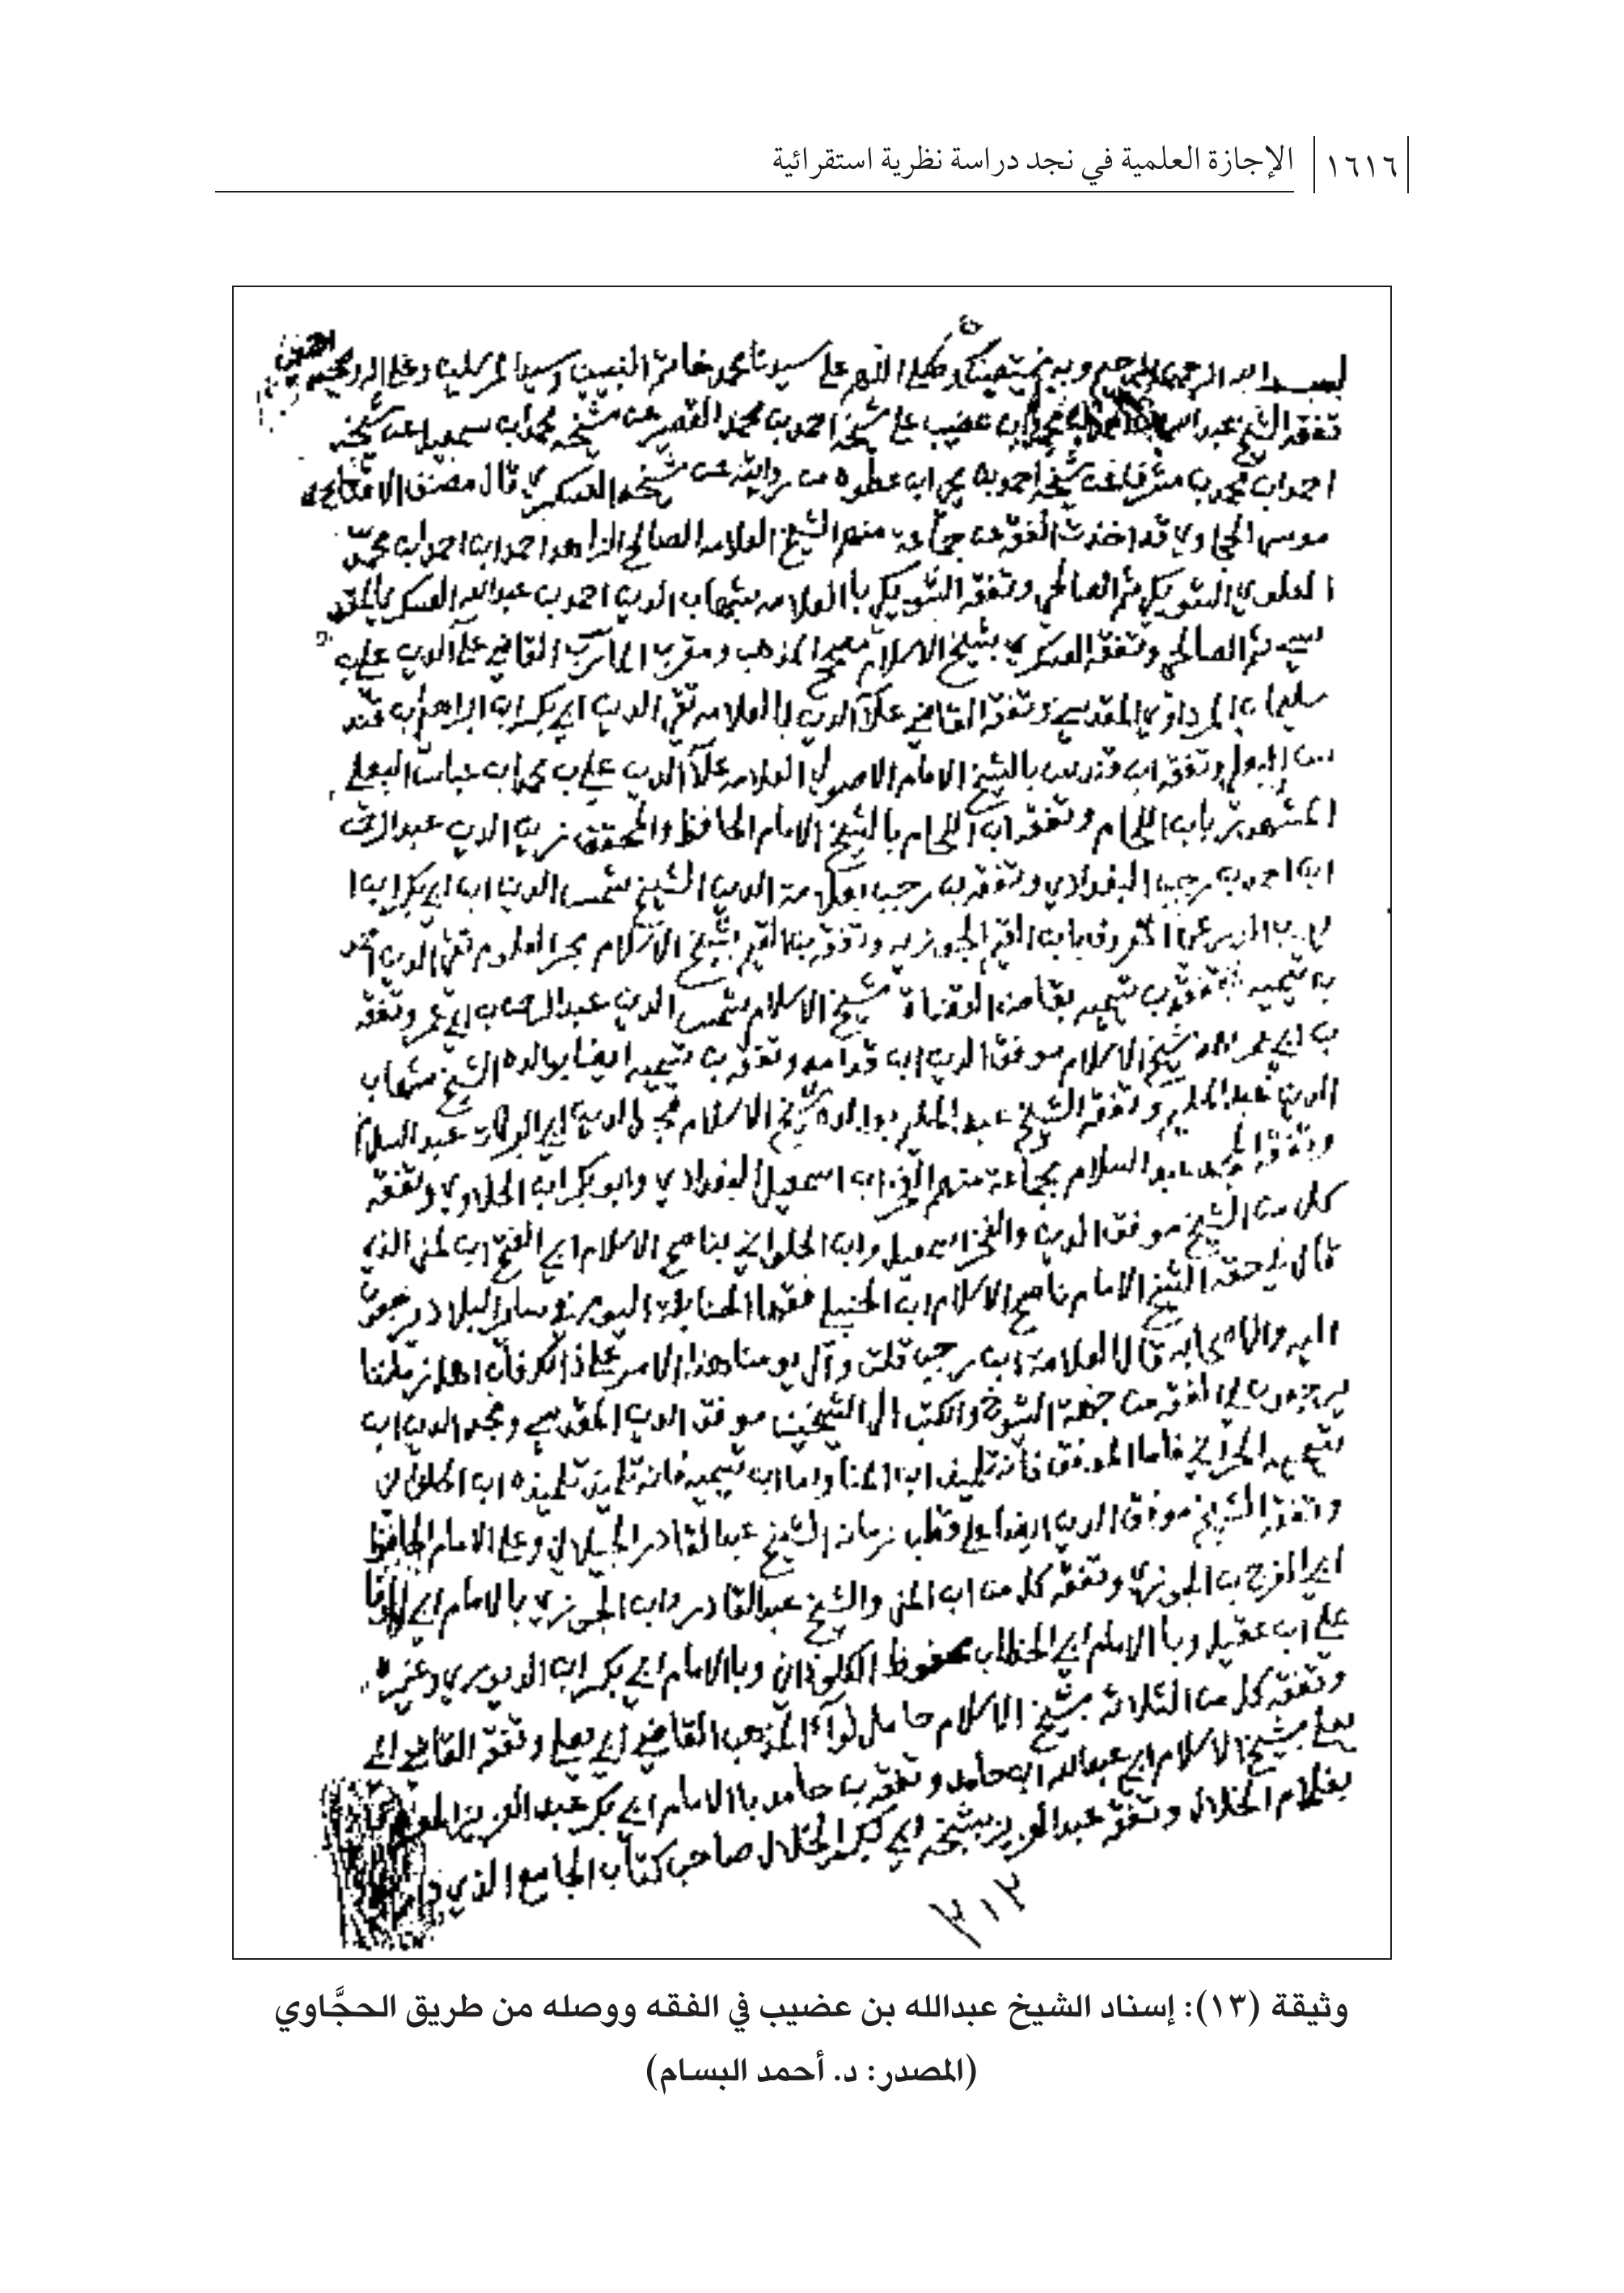 ١٦١٦ الإجازة العلمية في نجد دراسة نظرية استقرائية
بسم الله الرحمن الرحيم وبه نستعين وصلى اللهم على سيدنا محمد خاتم النبيين وسيد المرسلين وعلى اله وصحبه اجمعين
تفقه الشيخ عبدالله بن عضيب على شيخه احمد بن محمد القصير عن شيخه محمد ابن اسمعيل عن شيخه
احمد ابن محمد بن مشرف عن شيخه احمد بن يحي ابن عطوه من روايته عن شيخه العسكري قال مصنف الاقناع
موسى الحجاوي قد اخذت الفقه عن جماعة منهم الشيخ العلامه الصالح الزاهد احمد ابن احمد ابن محمد
العلوي الشويكي ثم الصالحي وتفقه الشويكي باالعلامه شهاب الدين احمد بن عبدالله العسكري المقد
سي ثم الصالحي وتفقه العسكري بشيخ الاسلام مصحح المذهب القاضي علي الدين علي بن
سليمان المرداوي المقدسي وتفقه القاضي علاء الدين بالعلامه تقي الدين ابي بكر ابن ابراهيم بن قند
س البعلي وتفقه ابن قندس بالشيخ الامام الاصولي العلامه علاء الدين علي بن ابن عباس البعلي
المشهور بابن اللحام وتفقه ابن اللحام بالشيخ الامام الحافظ والمحقق زين الدين عبدالرحمن
ابن احمد بن رجب البغدادي وتفقه بن رجب الشيخ شمس الدين ابن ابي بكر ابن
الزرعي المعروف بابن القيم الجوزيه وتفقه بن القيم بشيخ الاسلام بحر العلوم تقي الدين احمد
بن تيميه وتفقه بن تيميه بقاضي القضاة شيخ الاسلام شمس الدين عبدالرحمن بن ابي عمر وتفقه
بن ابي عمر شيخ الاسلام موفق الدين ابن قدامه وتفقه بن تيميه ايضا بوالده الشيخ شهاب
الدين عبدالحليم وتفقه الشيخ عبدالحليم بوالده شيخ الاسلام مجد الدين ابي البركات عبدالسلام
وتفقه المجد عبدالسلام بجماعة منهم الفخر ابن اسمعيل البغدادي وابو بكر ابن الحلاوي وتفقه
كل من الشيخ موفق الدين والفخر اسمعيل وابن الحلواني بناصح الاسلام ابي الفتح ابن المني الذي
قال في حقه الشيخ الامام ناصح الاسلام ابن الحنبلي فقهاء الحنابلة اليوم في ساير البلاد يرجعون
اليه والى اصحابه قال العلامة ابن رجب قلت وآل يومنا هذا الامر على ذلك فان اهل زماننا
يرجعون في الفقه من جهة الشيوخ والكتب الى الشيخين موفق الدين المقدسي ومجد الدين ابن
تيميه الحراني فاما الموفق فانه تلميذ ابن المنا واما ابن تيميه فانه تلميذ تلميذه ابن الحلواني
وتفقه الشيخ موفق الدين ايضا على قطب زمانه الشيخ عبدالقادر الجيلاني وعلى الامام الحافظ
ابي الفرج بن الجوزي وتفقه كل من ابن المني والشيخ عبدالقادر وابن الجوزي باالامام ابي الوفا
علي ابن عقيل وباالامام ابي الخطاب محفوظ الكلوذاني وباالامام ابي بكر ابن الدينوري وغيرهم
وتفقه كل من الثلاثه بشيخ الاسلام حامل لواء المذهب القاضي ابي يعلى وتفقه القاضي ابي
يعلى بشيخ الاسلام ابي عبدالله ابن حامد وتفقه بن حامد باالامام ابي بكر عبدالعزيز المعروف
بغلام الخلال وتفقه عبدالعزيز بشيخه ابي بكر الخلال صاحب كتاب الجامع الذي
٣١٣
وثيقة (١٣): إسناد الشيخ عبدالله بن عضيب في الفقه ووصله من طريق الحجَّاوي
(المصدر: د. أحمد البسام)